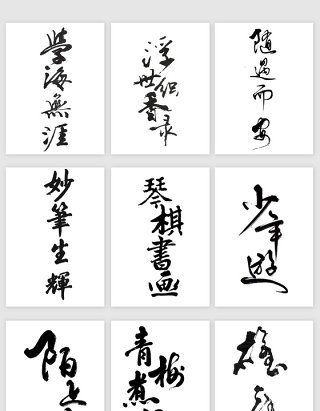 學海無涯
浮世組香录
隨遇而安
妙筆生輝
琴棋書画
少年遊
陌上
青梅煮
雄